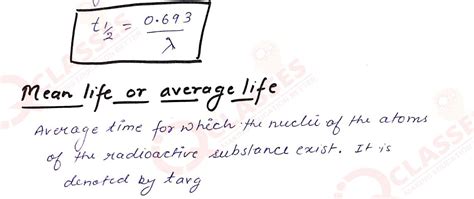 t½ = 0.693 / λ
Mean life or average life
Average time for which the nuclei of the atoms
of the radioactive substance exist. It is
denoted by tavg
CLASSES
CLASSES
CLASSES